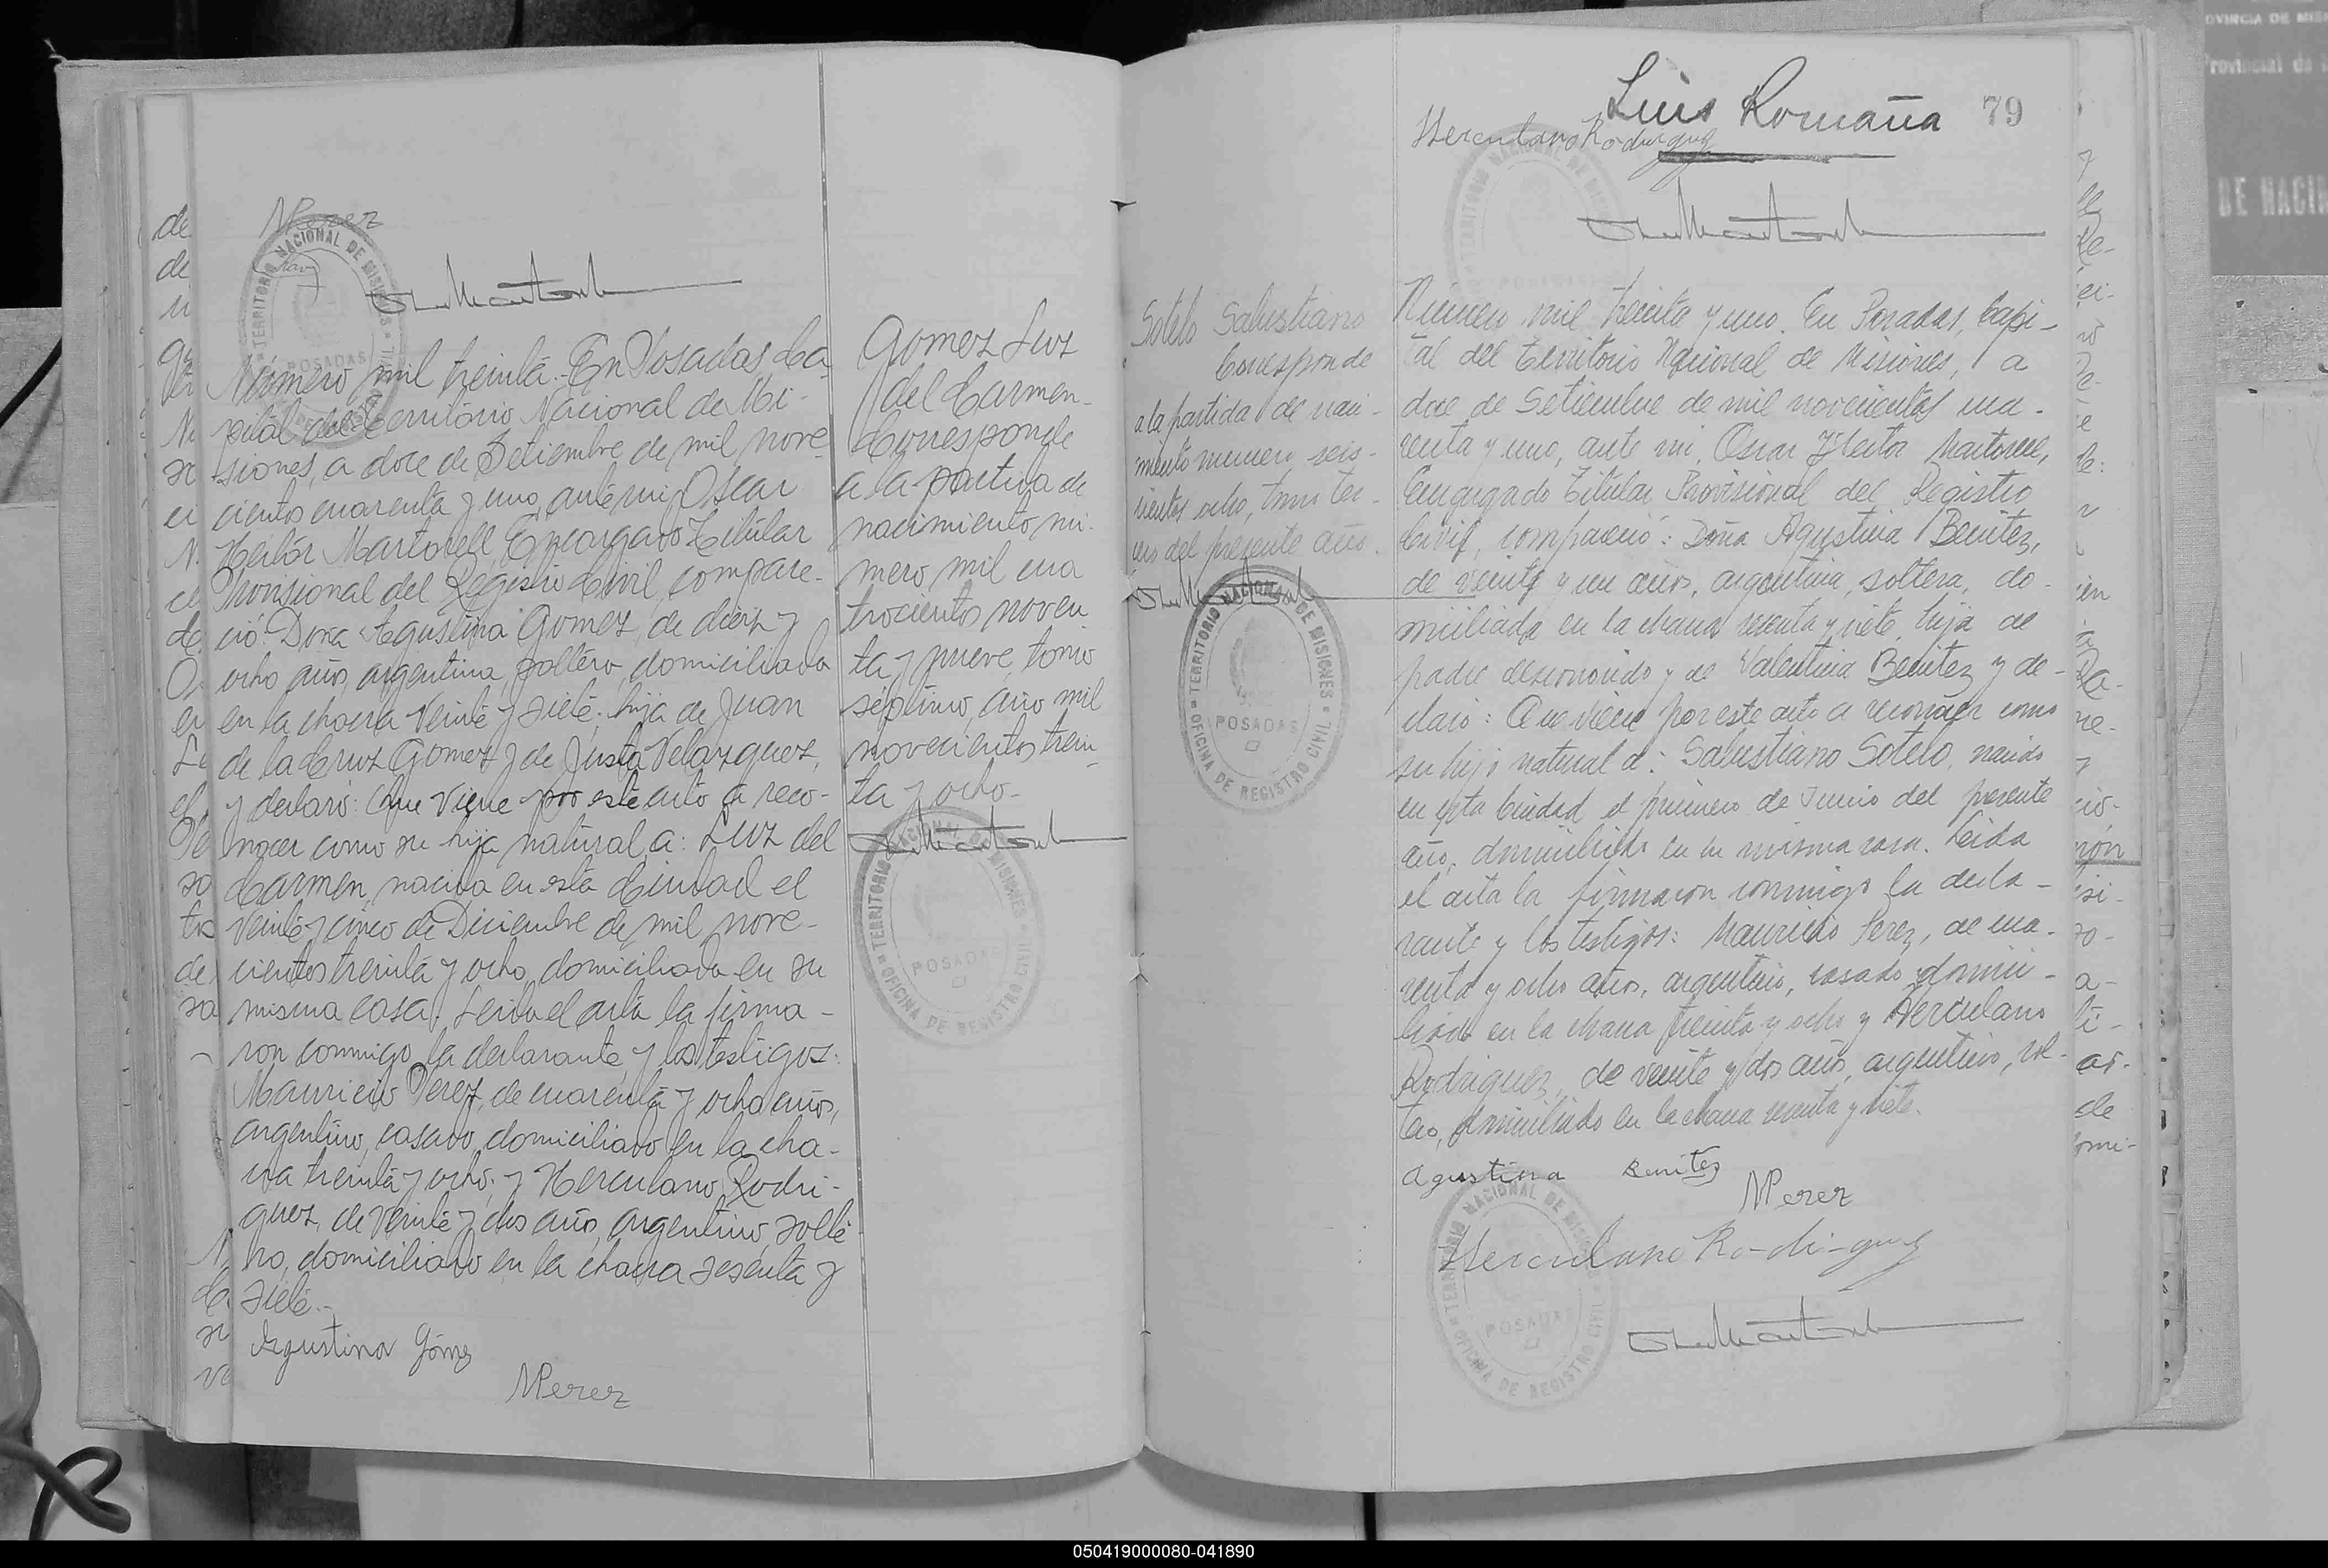 MPerez
TERRITORIO NACIONAL DE MISIONES
POSADAS
Número mil treinta. En Posadas, Ca
pital del Territorio Nacional de Mi-
siones, a doce de Setiembre de mil nove
cientos cuarenta y uno, ante mi, Oscar
Heitor Martorell, Encargado Titular
Provisional del Registro Civil, compare-
ció: Doña Agustina Gomez, de diez y
ocho años, argentina, soltera, domiciliada
en la chacra veinte y siete, hija de Juan
de la Cruz Gomez y de Justa Velazquez,
y declaró: Que viene por este acto a reco-
nocer como su hija natural a: Luz del
Carmen, nacida en esta Ciudad el
veinte y cinco de Diciembre de mil nove-
cientos treinta y ocho, domiciliada en su
misma casa. Leida el acta la firma-
ron conmigo la declarante y los testigos:
Mauricio Perez, de cuarenta y ocho años,
argentino, casado, domiciliado en la cha-
cra treinta y ocho, y Herculano Rodri-
guez, de veinte y dos años, argentino, solte
ro, domiciliado en la chacra sesenta y
siete.-
Agustina Gómez
MPerez
Gomez Luz
del Carmen-
Corresponde
a la partida de
nacimiento nú-
mero mil cua
trocientos noven
ta y nueve, tomo
séptimo, año mil
novecientos trein
ta y ocho-
TERRITORIO NACIONAL DE MISIONES
POSADAS
OFICINA DE REGISTRO CIVIL
Luis Romaña 79
Herculano Rodriguez
Sotelo Salustiano
Corresponde
a la partida de naci-
miento numero seis-
cientos ocho, tomo ter-
cero del presente año.
TERRITORIO NACIONAL DE MISIONES
POSADAS
OFICINA DE REGISTRO CIVIL
Número mil treinta y uno. En Posadas, Capi-
tal del Territorio Nacional de Misiones, a
doce de Setiembre de mil novecientos cua-
renta y uno, ante mi, Oscar Heitor Martorell,
Encargado Titular Provisional del Registro
Civil, compareció: Doña Agustina Benitez,
de veinte y un años, argentina, soltera, do-
miciliada en la chacra sesenta y siete, hija de
padre desconocido y de Valentina Benitez y de-
claró: Que viene por este acto a reconocer como
su hijo natural a: Salustiano Sotelo, nacido
en esta Ciudad el primero de Junio del presente
año, domiciliado en su misma casa. Leida
el acta la firmaron conmigo la decla-
rante y los testigos: Mauricio Perez, de cua-
renta y ocho años, argentino, casado, domici-
liado en la chacra treinta y ocho y Herculano
Rodriguez, de veinte y dos años, argentino, sol-
tero, domiciliado en la chacra sesenta y siete.
Agustina Benitez
MPerez
Herculano Ro-dri-guez
TERRITORIO NACIONAL DE MISIONES
POSADAS
OFICINA DE REGISTRO CIVIL
050419000080-041890